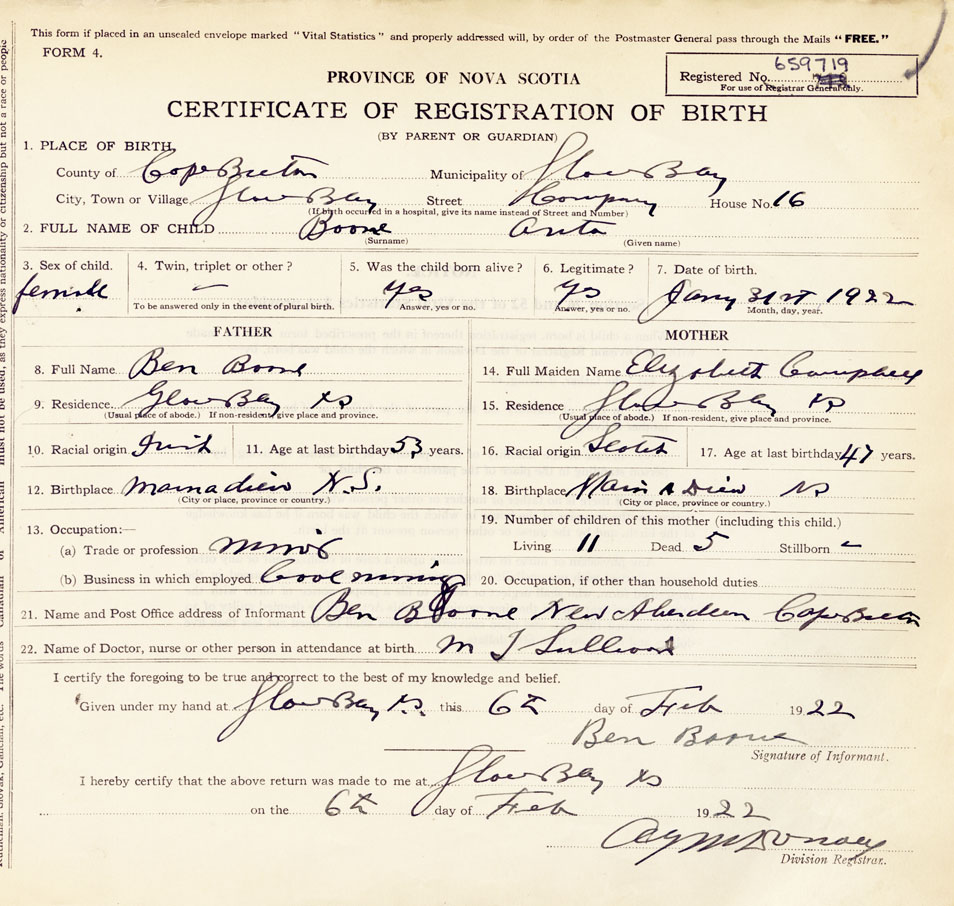 This form if placed in an unsealed envelope marked "Vital Statistics" and properly addressed will, by order of the Postmaster General pass through the Mails "FREE."
FORM 4.
659719
Registered No.
For use of Registrar General only.
PROVINCE OF NOVA SCOTIA
CERTIFICATE OF REGISTRATION OF BIRTH
(BY PARENT OR GUARDIAN)
1. PLACE OF BIRTH
County of Cape Breton Municipality of Glace Bay
City, Town or Village Glace Bay Street Company House No. 16
(If birth occurred in a hospital, give its name instead of Street and Number)
2. FULL NAME OF CHILD Boone Anita
(Surname) (Given name)
3. Sex of child. 4. Twin, triplet or other? 5. Was the child born alive? 6. Legitimate? 7. Date of birth.
female – Yes Yes Jany 31st 1922
To be answered only in the event of plural birth. Answer, yes or no. Answer, yes or no. Month, day, year.
FATHER MOTHER
8. Full Name Ben Boone 14. Full Maiden Name Elizabeth Campbell
9. Residence Glace Bay NS 15. Residence Glace Bay NS
(Usual place of abode.) If non-resident, give place and province. (Usual place of abode.) If non-resident, give place and province.
10. Racial origin Irish 11. Age at last birthday 53 years. 16. Racial origin Scotch 17. Age at last birthday 47 years.
12. Birthplace Mainadieu N.S. 18. Birthplace Main A Dieu NS
(City or place, province or country.) (City or place, province or country.)
19. Number of children of this mother (including this child.)
13. Occupation:—
(a) Trade or profession Living 11 Dead 5 Stillborn –
(b) Business in which employed Coal mining 20. Occupation, if other than household duties
21. Name and Post Office address of Informant Ben Boone New Aberdeen Cape Breton
22. Name of Doctor, nurse or other person in attendance at birth M J Sullivan
I certify the foregoing to be true and correct to the best of my knowledge and belief.
Given under my hand at Glace Bay N.S. this 6th day of Feb 1922
Ben Boone
Signature of Informant.
I hereby certify that the above return was made to me at Glace Bay NS
on the 6th day of Feb 1922
Division Registrar.